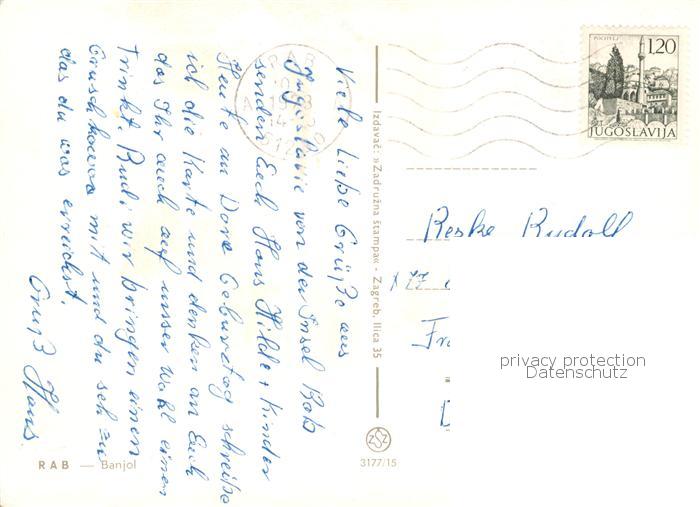 Viele Liebe Grüße aus
Jugoslavie von der Insel Rab
senden Euch Hans Hilde + Kinder
Heute an Dora Geburtstag schreibe
ich die Karte und denken an Euch
das Ihr auch auf unser Wohl einen
Trinkt. Rudi wir bringen einen
mit und du seh zu
das du was erreichst.
Gruß Hans.
RAB — Banjol
Izdavač: »Zadružna štampa« - Zagreb, Ilica 35
3177/15
RAB
POČITELJ
1,20
JUGOSLAVIJA
Reske Rudolf
privacy protection
Datenschutz